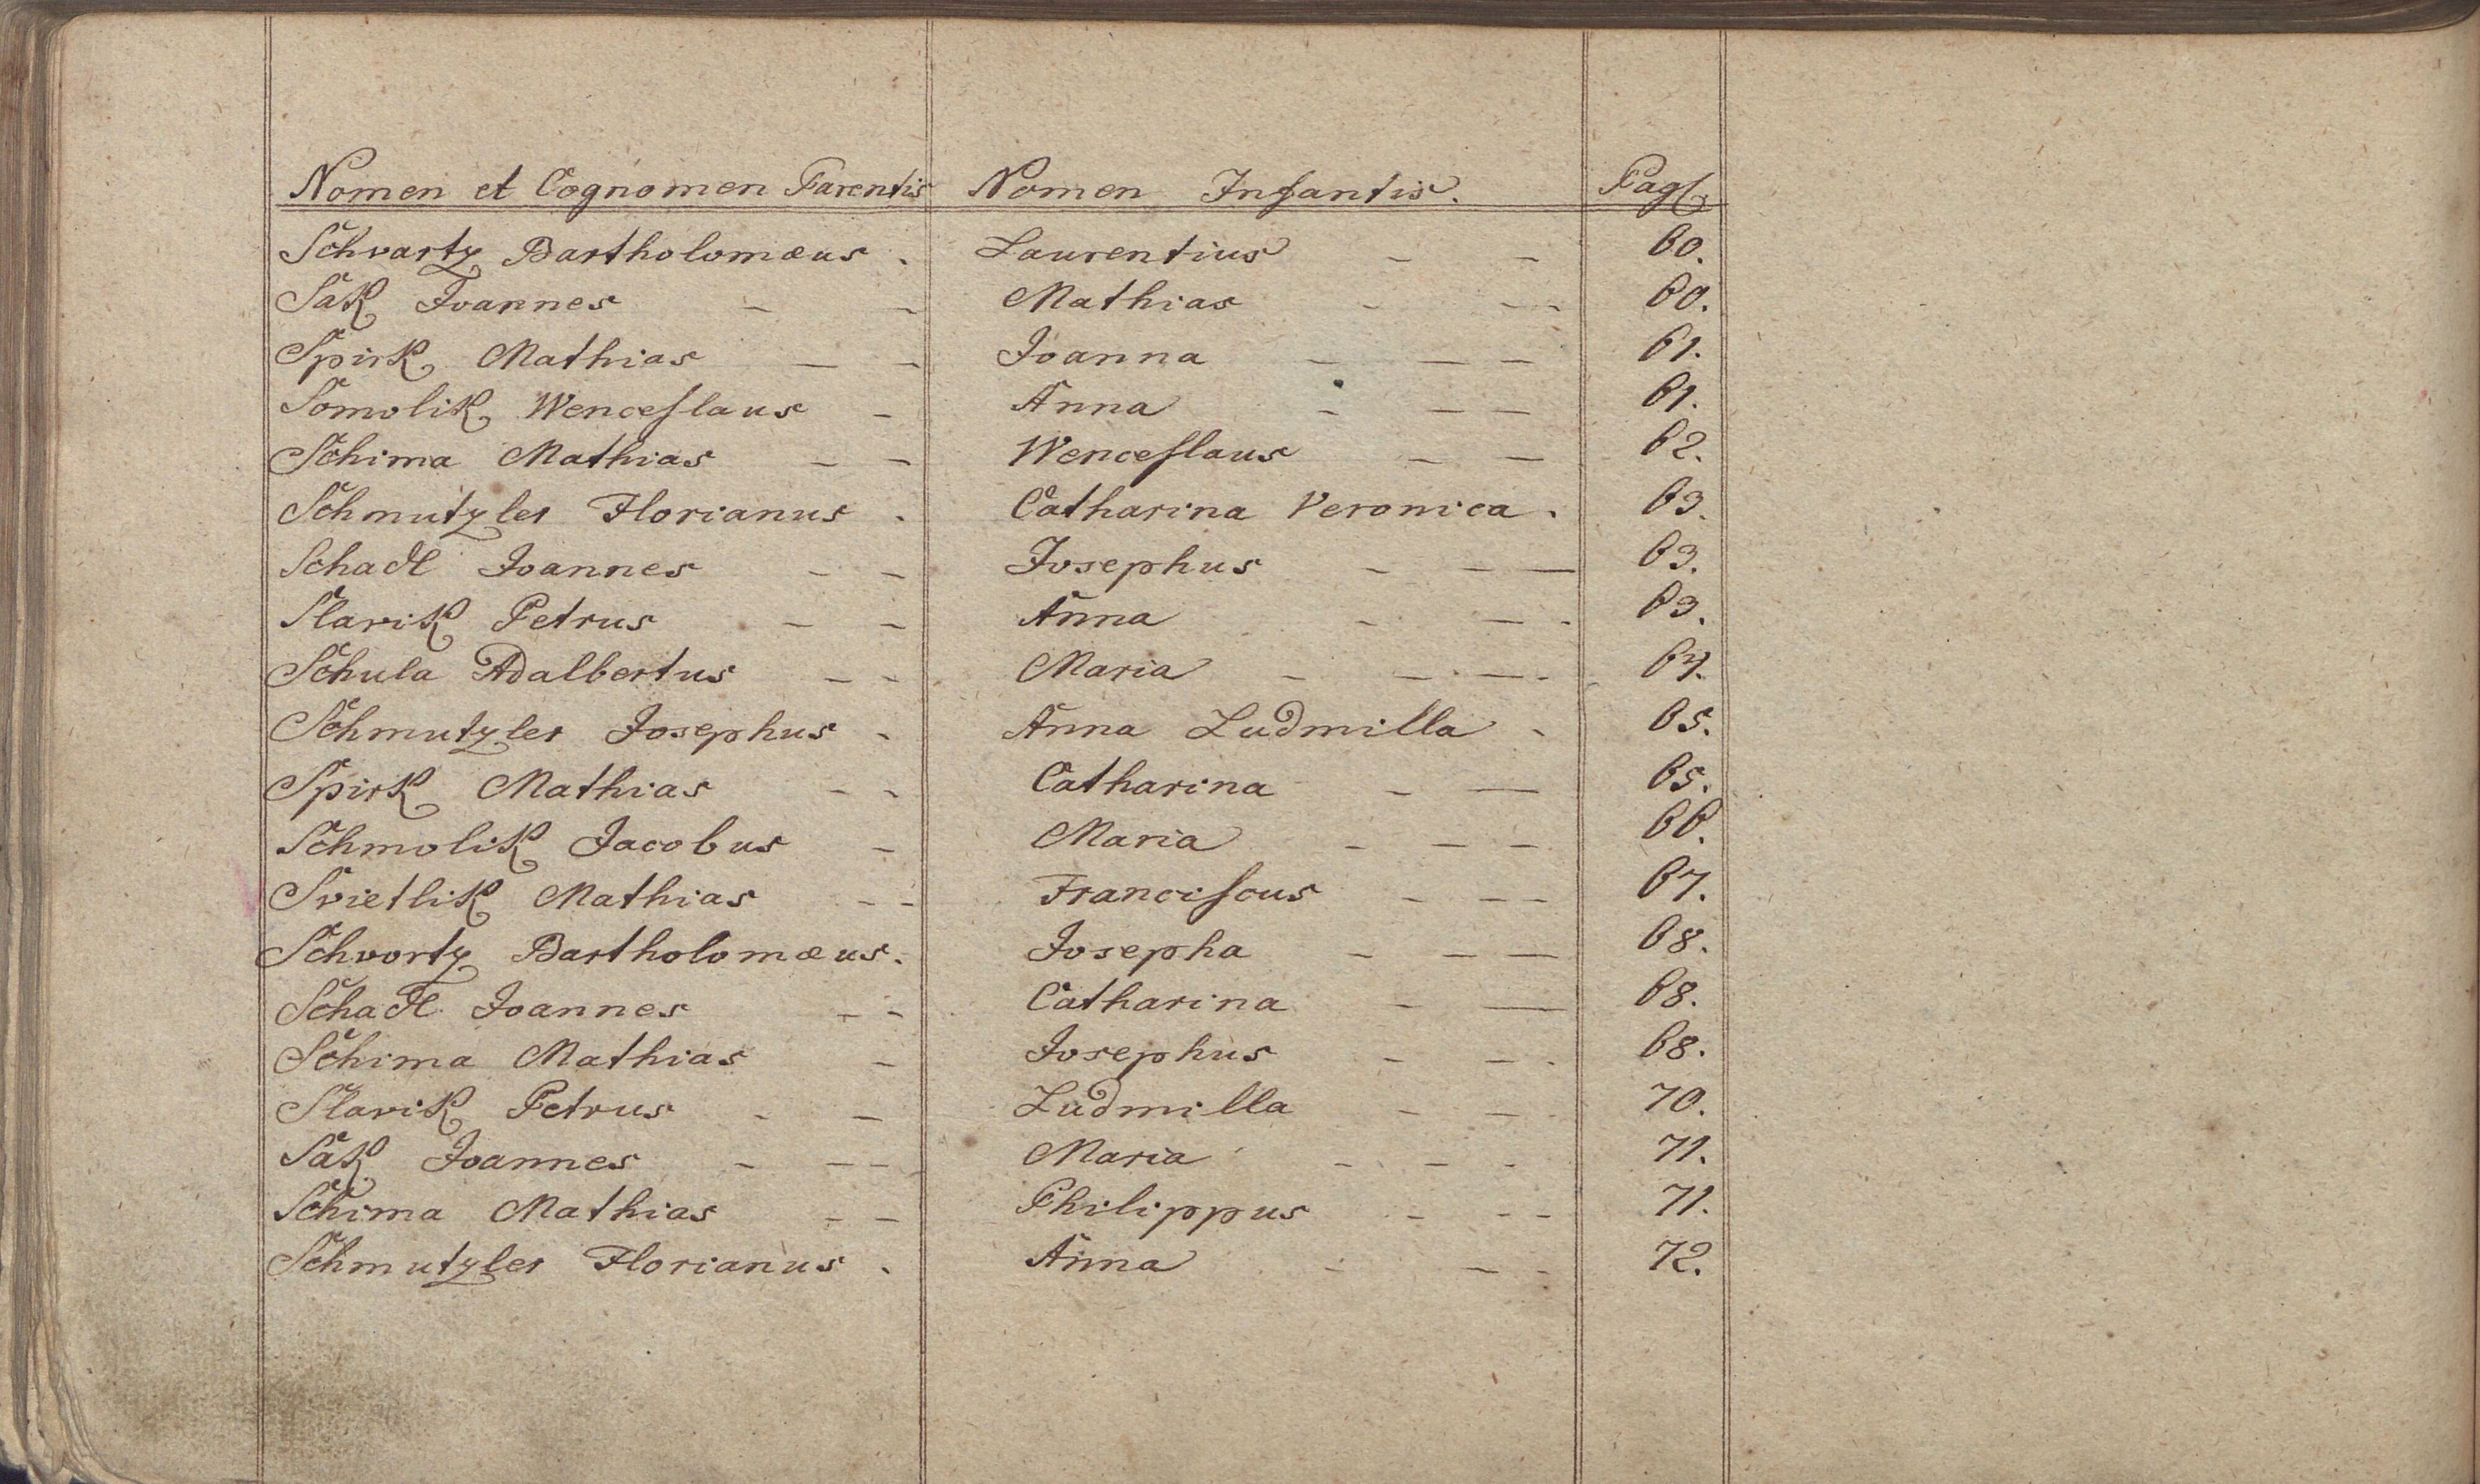 Nomen et Cognomen Parentis Nomen Infantis. Pag.
Schvartz Bartholomæus. Laurentius 60.
Sak Joannes Mathias 60.
Spirk Mathias Joanna 61.
Somolik Wenceslaus Anna 61.
Schima Mathias Wenceslaus 62.
Schmutzler Florianus. Catharina Veronica. 63.
Schadt Joannes Josephus 63.
Slavik Petrus Anna 63.
Schula Adalbertus Maria 64.
Schmutzler Josephus Anna Ludmilla 65.
Spirk Mathias Catharina 65.
Schmolik Jacobus Maria 66.
Svietlik Mathias Franciscus 67.
Schvortz Bartholomæus. Josepha 68.
Schadt Joannes Catharina 68.
Schima Mathias Josephus 68.
Slavik Petrus Ludmilla 70.
Sak Joannes Maria 71.
Schima Mathias Philippus 71.
Schmutzler Florianus. Anna 72.